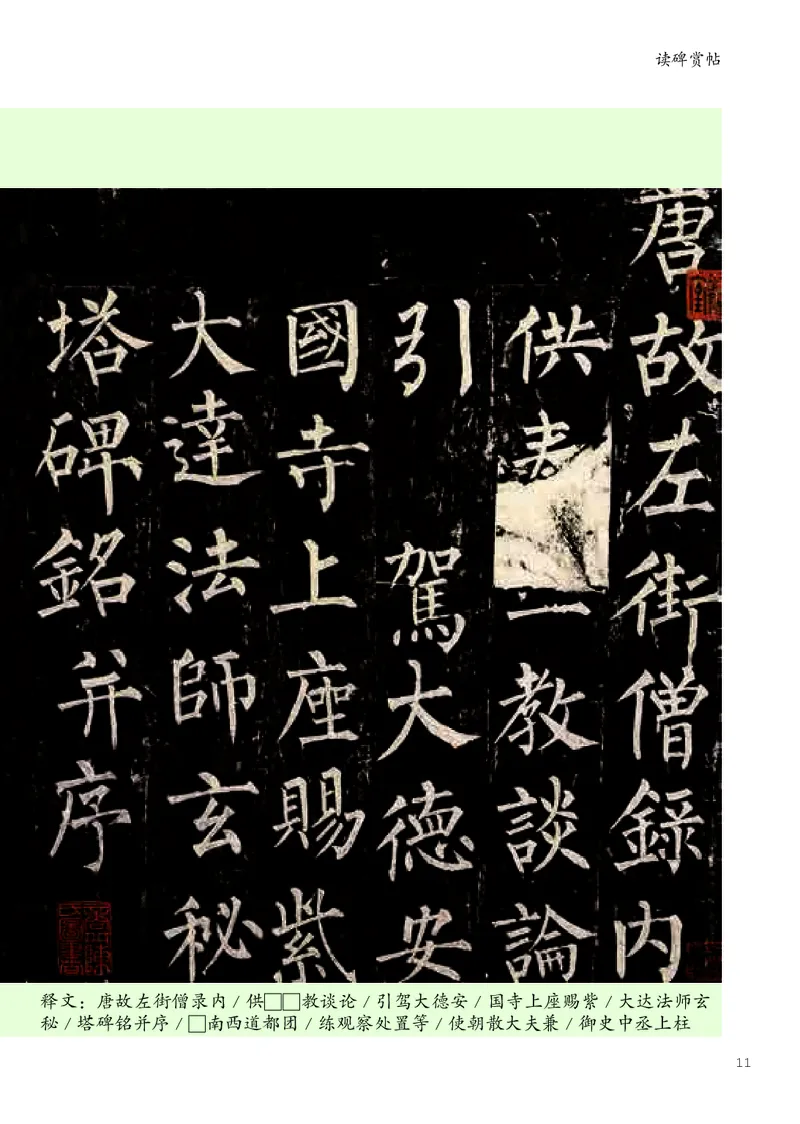 读碑赏帖
唐故左街僧錄内
供教談論
引駕大德安
國寺上座賜紫
大達法師玄秘
塔碑銘并序
释文：唐故左街僧录内 / 供□□教谈论 / 引驾大德安 / 国寺上座赐紫 / 大达法师玄
秘 / 塔碑铭并序 / □南西道都团 / 练观察处置等 / 使朝散大夫兼 / 御史中丞上柱
11